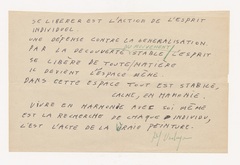 SE LIBÉRER EST L'ACTION DE L'ESPRIT
INDIVIDUEL
UNE DÉFENSE CONTRE LA GÉNÉRALISATION
PAR LA DÉCOUVERTE STABLE L'ESPRIT
SE LIBÈRE DE TOUTE MATIÈRE
IL DEVIENT L'ESPACE MÊME.
DANS CETTE ESPACE TOUT EST STABILE,
CALME, EN HARMONIE.
VIVRE EN HARMONIE AVEC LUI MÊME
EST LA RECHERCHE DE CHAQUE INDIVIDU,
C'EST L'ACTE DE LA VRAIE PEINTURE.